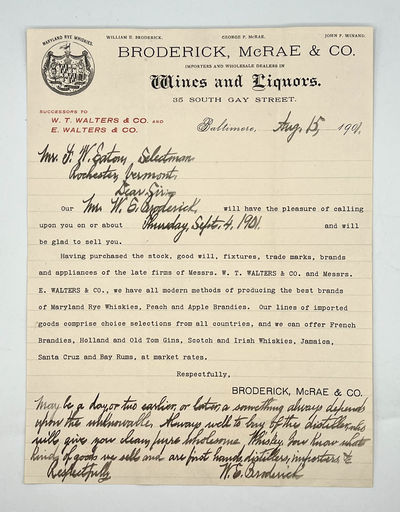 MARYLAND RYE WHISKIES.
WILLIAM E. BRODERICK. GEORGE P. McRAE. JOHN F. WINAND.
BRODERICK, McRAE & CO.
IMPORTERS AND WHOLESALE DEALERS IN
Wines and Liquors.
35 SOUTH GAY STREET.
SUCCESSORS TO
W. T. WALTERS & CO. AND
E. WALTERS & CO.
Baltimore, Aug. 15, 1901.
Mr. F. W. Eaton, Selectman
Rochester, Vermont.
Dear Sir,
Our Mr. W. E. Broderick, will have the pleasure of calling
upon you on or about Thursday, Sept. 4, 1901. and will
be glad to sell you.
Having purchased the stock, good will, fixtures, trade marks, brands
and appliances of the late firms of Messrs. W. T. WALTERS & CO. and Messrs.
E. WALTERS & CO., we have all modern methods of producing the best brands
of Maryland Rye Whiskies, Peach and Apple Brandies. Our lines of imported
goods comprise choice selections from all countries, and we can offer French
Brandies, Holland and Old Tom Gins, Scotch and Irish Whiskies, Jamaica,
Santa Cruz and Bay Rums, at market rates.
Respectfully,
BRODERICK, McRAE & CO.
May be a day, or two earlier, or later, a something always depends
upon the unknowable. Always well to buy of the distiller, who
will give you clean, pure wholesome, Whiskey. You know what
kind of goods we sell and are first hands, distillers, importers &c
Respectfully W. E. Broderick